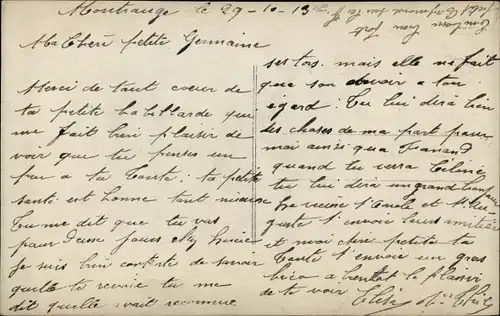 Montrouge le 29-10-13
Ma Chère petite Germaine
Merci de tout coeur de
ta petite babillarde qui
me fait bien plaisir de
voir que tu penses un
peu a ta Tante: ta petite
santé est bonne tant mieux
Tu me dit que tu vas
pour deux jours chez
je suis bien contente de savoir
quelle te revoie tu me
dit quelle avait reconnue
ses tors. mais elle ne fait
que son devoir a ton
égard: Tu lui dira bien
des choses de ma part pour
moi ainsi qua Fernand
quand tu verra
tu lui dira un grand bonjour
t'envoie leurs amitiés
et moi chère petite ta
Tante t'envoie un gros
bico a bientot le plaisir
de te voir Elisa